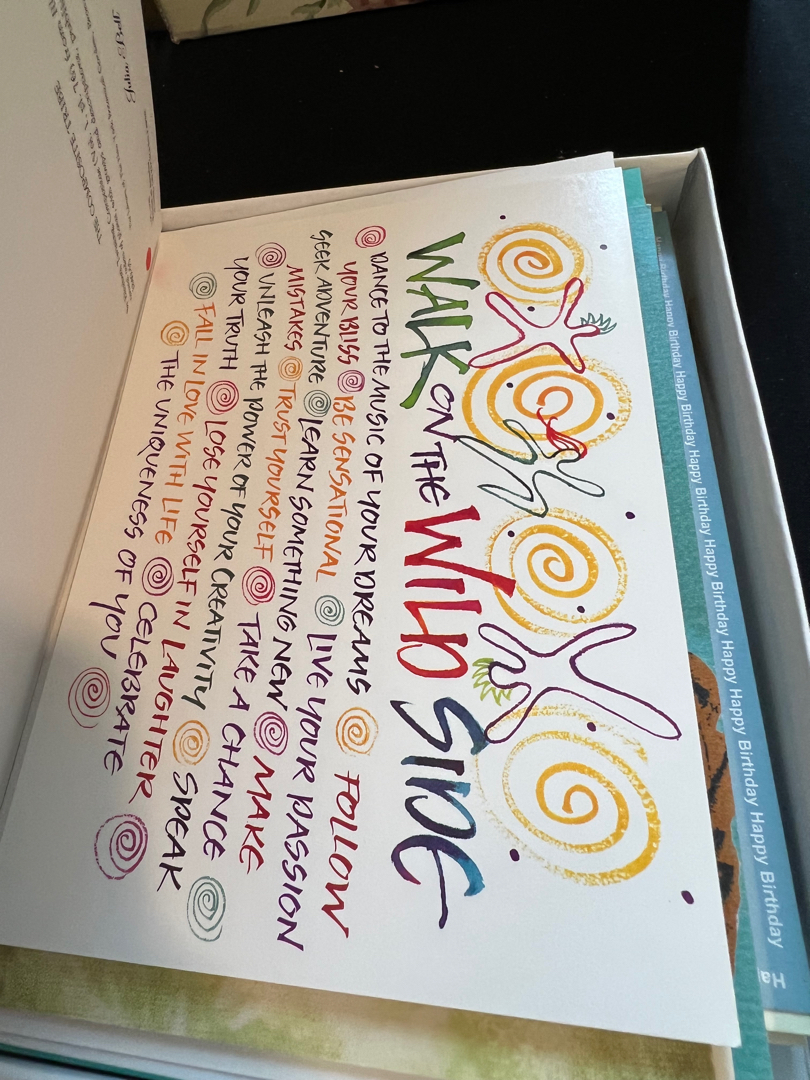 WALK ON THE WILD SIDE
DANCE TO THE MUSIC OF YOUR DREAMS FOLLOW
YOUR BLISS BE SENSATIONAL LIVE YOUR PASSION
SEEK ADVENTURE LEARN SOMETHING NEW MAKE
MISTAKES TRUST YOURSELF TAKE A CHANCE
UNLEASH THE POWER OF YOUR CREATIVITY SPEAK
YOUR TRUTH LOSE YOURSELF IN LAUGHTER
FALL IN LOVE WITH LIFE CELEBRATE
THE UNIQUENESS OF YOU
Birthday Happy Birthday Happy Birthday Happy Birthday Happy Birthday Happy Birthday Happy Birthday Happy Birthday Happy Birthday